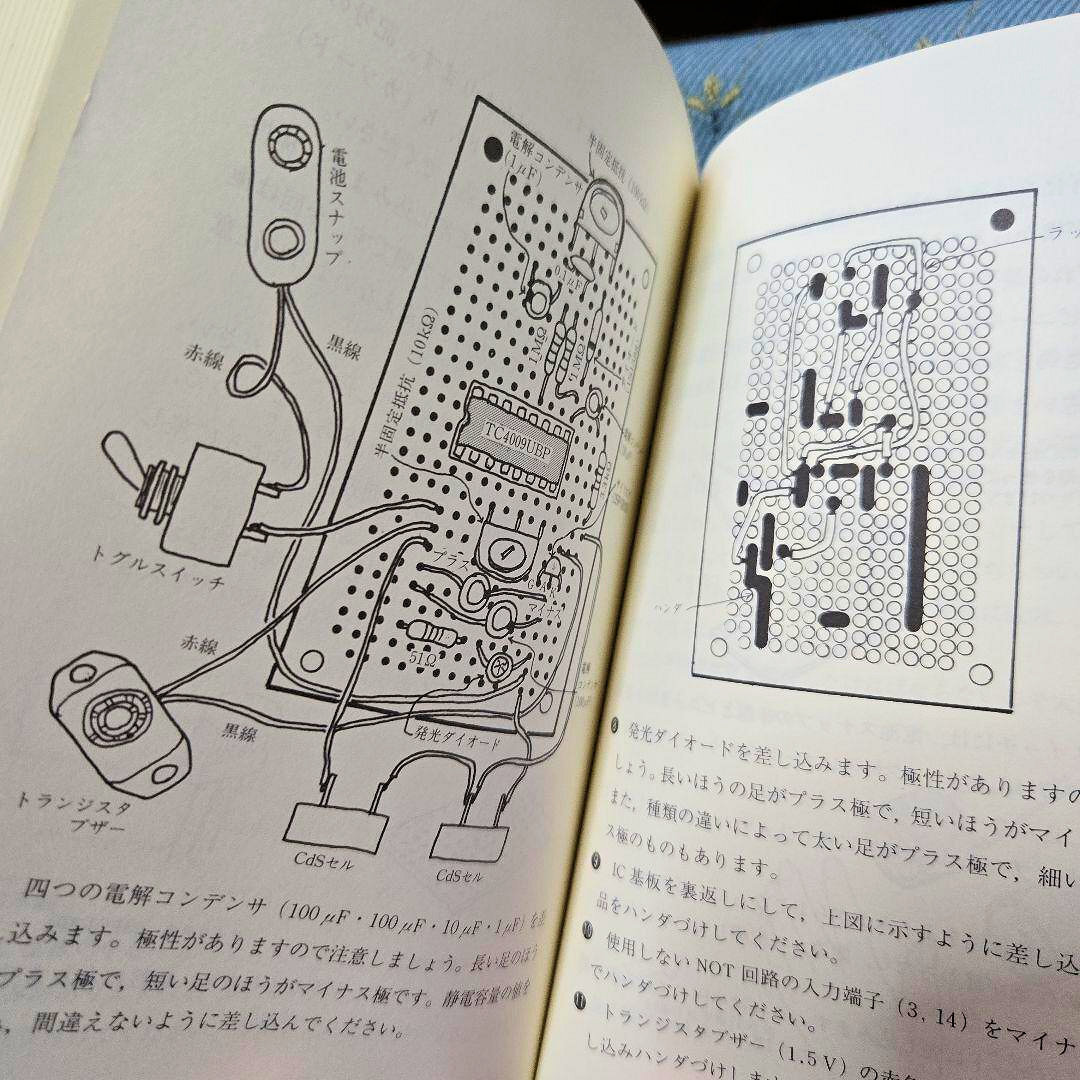 電解コンデンサ
(1μF)
半固定抵抗
電池スナップ
0.1μF
赤線
黒線
1MΩ
1MΩ
半固定抵抗 (10kΩ)
TC4009UBP
トグルスイッチ
プラス
G A K
マイナス
赤線
51Ω
黒線
発光ダイオード
トランジスタ
ブザー
CdSセル
CdSセル
四つの電解コンデンサ (100μF・100μF・10μF・1μF) を
込みます。極性がありますので注意しましょう。長い足のほう
プラス極で, 短い足のほうがマイナス極です。静電容量の値を
, 間違えないように差し込んでください。
ラッ
ハンダ
❽ 発光ダイオードを差し込みます。極性がありますの
しょう。長いほうの足がプラス極で, 短いほうがマイ
また, 種類の違いによって太い足がプラス極で, 細い
ス極のものもあります。
❾ IC基板を裏返しにして, 上図に示すように差し込
品をハンダづけしてください。
❿ 使用しないNOT回路の入力端子 (3, 14) をマイナ
でハンダづけしてください。
⓫ トランジスタブザー (1.5V) の赤
し込みハンダづけします